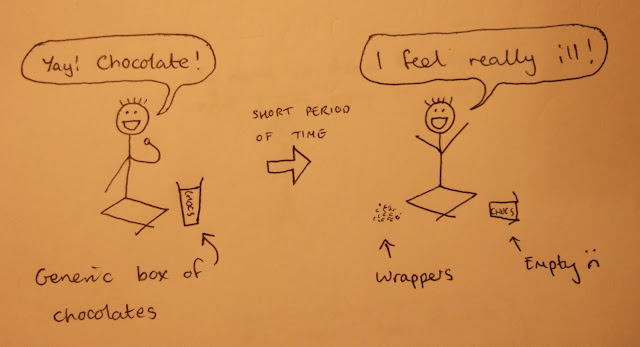 Yay! Chocolate!
CHOCS
Generic box of
chocolates
SHORT PERIOD
OF TIME
I feel really ill!
CHOCS
Wrappers
Empty